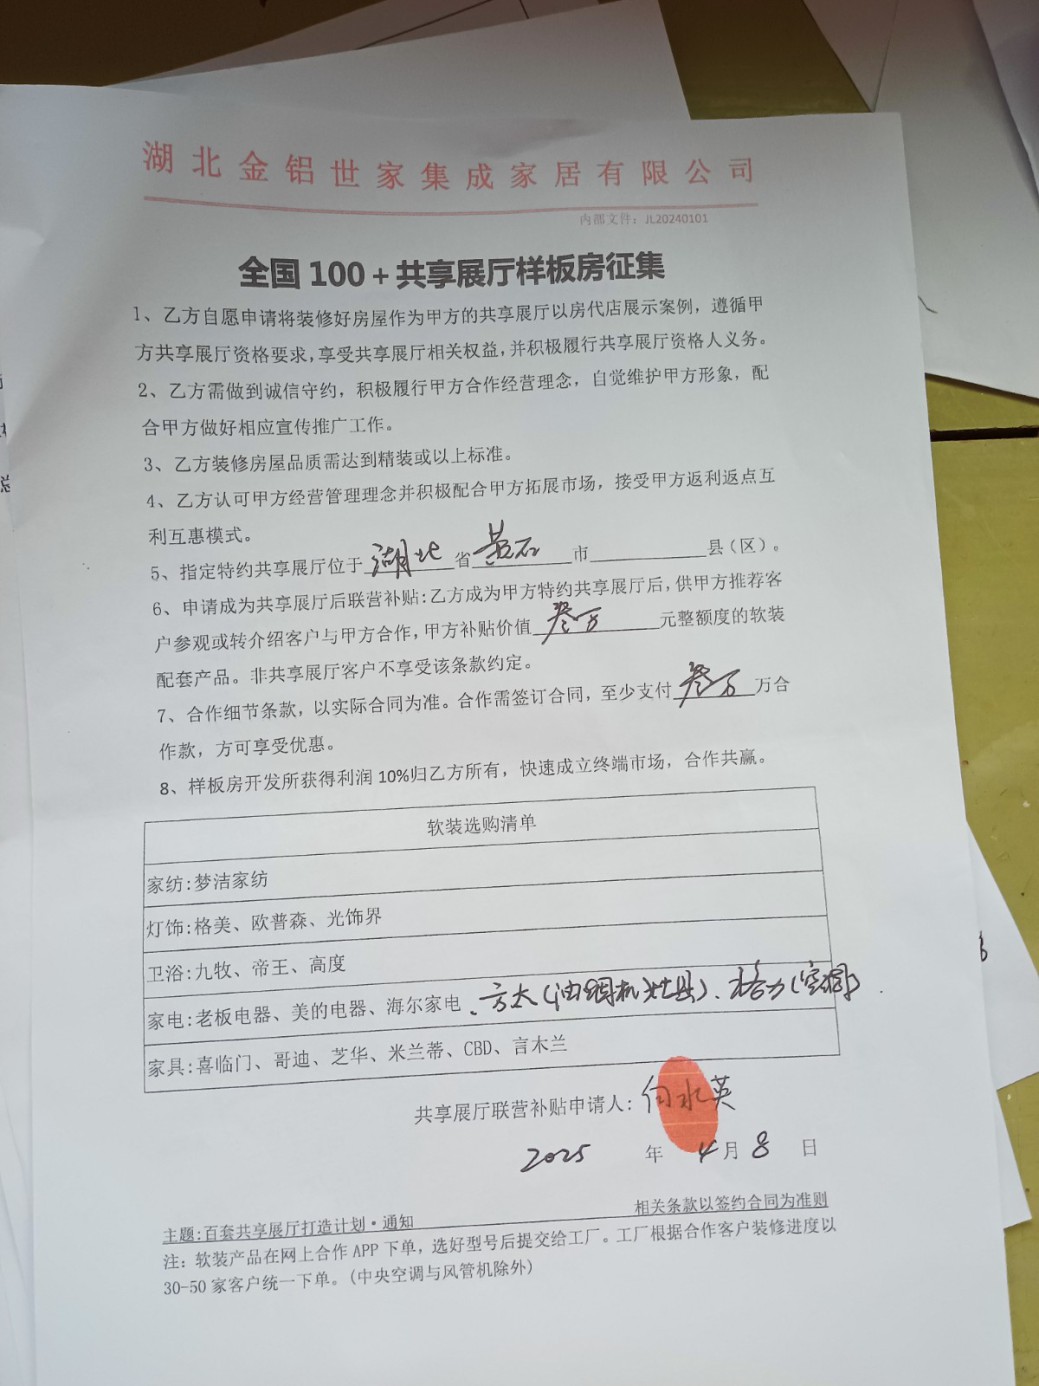 湖北金铝世家集成家居有限公司
内部文件：JL20240101
全国100+共享展厅样板房征集
1、乙方自愿申请将装修好房屋作为甲方的共享展厅以房代店展示案例，遵循甲
方共享展厅资格要求，享受共享展厅相关权益，并积极履行共享展厅资格人义务。
2、乙方需做到诚信守约，积极履行甲方合作经营理念，自觉维护甲方形象，配
合甲方做好相应宣传推广工作。
3、乙方装修房屋品质需达到精装或以上标准。
4、乙方认可甲方经营管理理念并积极配合甲方拓展市场，接受甲方返利返点互
利互惠模式。
5、指定特约共享展厅位于湖北省黄石市________县（区）。
6、申请成为共享展厅后联营补贴：乙方成为甲方特约共享展厅后，供甲方推荐客
户参观或转介绍客户与甲方合作，甲方补贴价值叁万元整额度的软装
配套产品。非共享展厅客户不享受该条款约定。
7、合作细节条款，以实际合同为准。合作需签订合同，至少支付叁万万合
作款，方可享受优惠。
8、样板房开发所获得利润10%归乙方所有，快速成立终端市场，合作共赢。
软装选购清单
家纺：梦洁家纺
灯饰：格美、欧普森、光饰界
卫浴：九牧、帝王、高度
家电：老板电器、美的电器、海尔家电、方太（油烟机灶具）、格力（空调）
家具：喜临门、哥迪、芝华、米兰蒂、CBD、言木兰
共享展厅联营补贴申请人：向水英
2025年4月8日
主题：百套共享展厅打造计划·通知 相关条款以签约合同为准则
注：软装产品在网上合作APP下单，选好型号后提交给工厂。工厂根据合作客户装修进度以
30-50家客户统一下单。（中央空调与风管机除外）